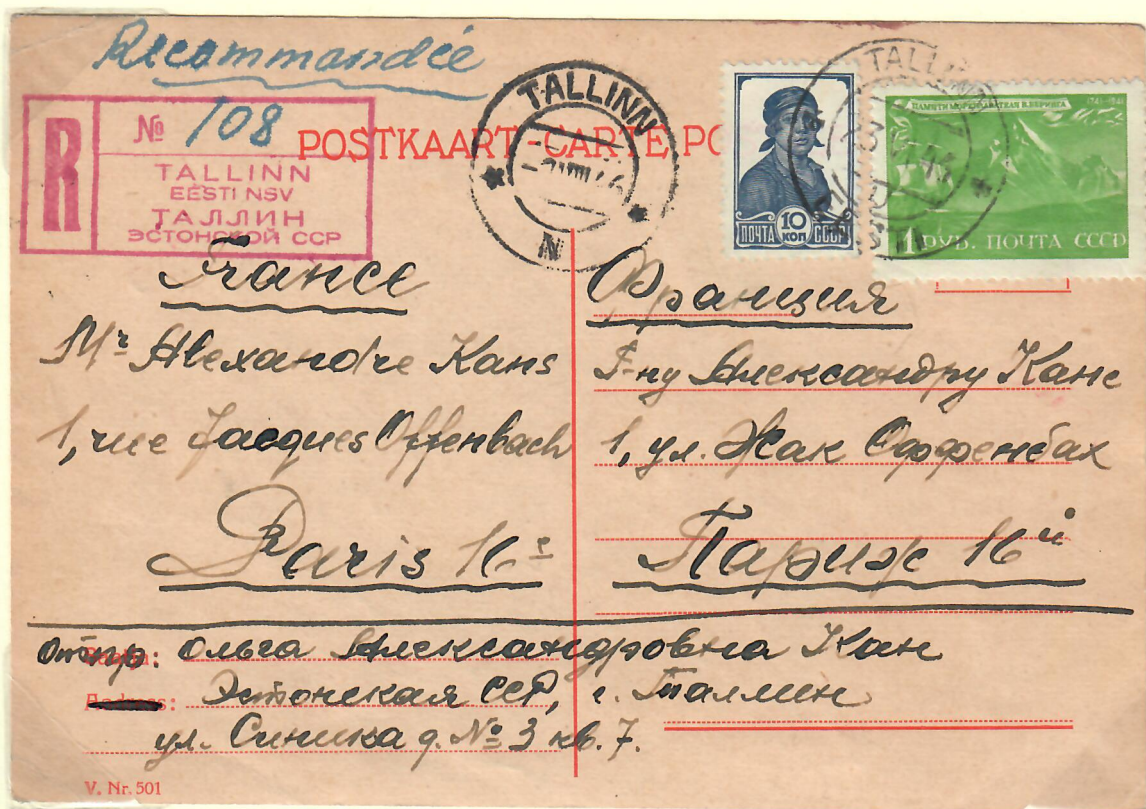 Recommandée
R № 108
TALLINN
EESTI NSV
ТАЛЛИН
ЭСТОНСКОЙ ССР
POSTKAART-CARTE PO
TALLINN
N
TALLINN
EESTI
10 КОП
ПОЧТА СССР
ПАМЯТИ МОРЕПЛАВАТЕЛЯ В.БЕРИНГА 1741-1941
1 РУБ. ПОЧТА СССР
France
Mr Alexandre Kans
1, rue Jacques Offenbach
Paris 16e
Франция
Г-ну Александру Канс
1, ул. Жак Оффенбах
Париж 16й
Отпр: Ольга Александровна Кан
Эстонская ССР, г. Таллин
ул. Синика д. № 3 кв. 7.
V. Nr. 501